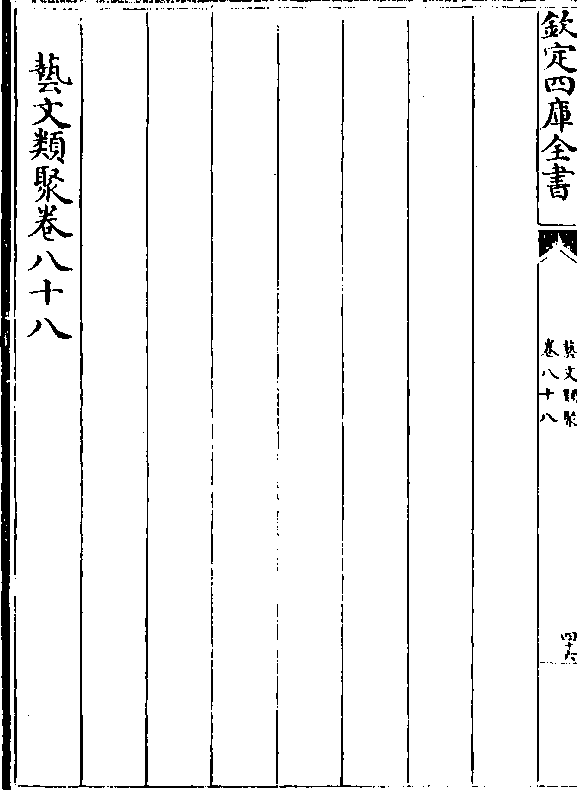 欽定四庫全書
藝文類聚
卷八十八
四十六
藝文類聚卷八十八